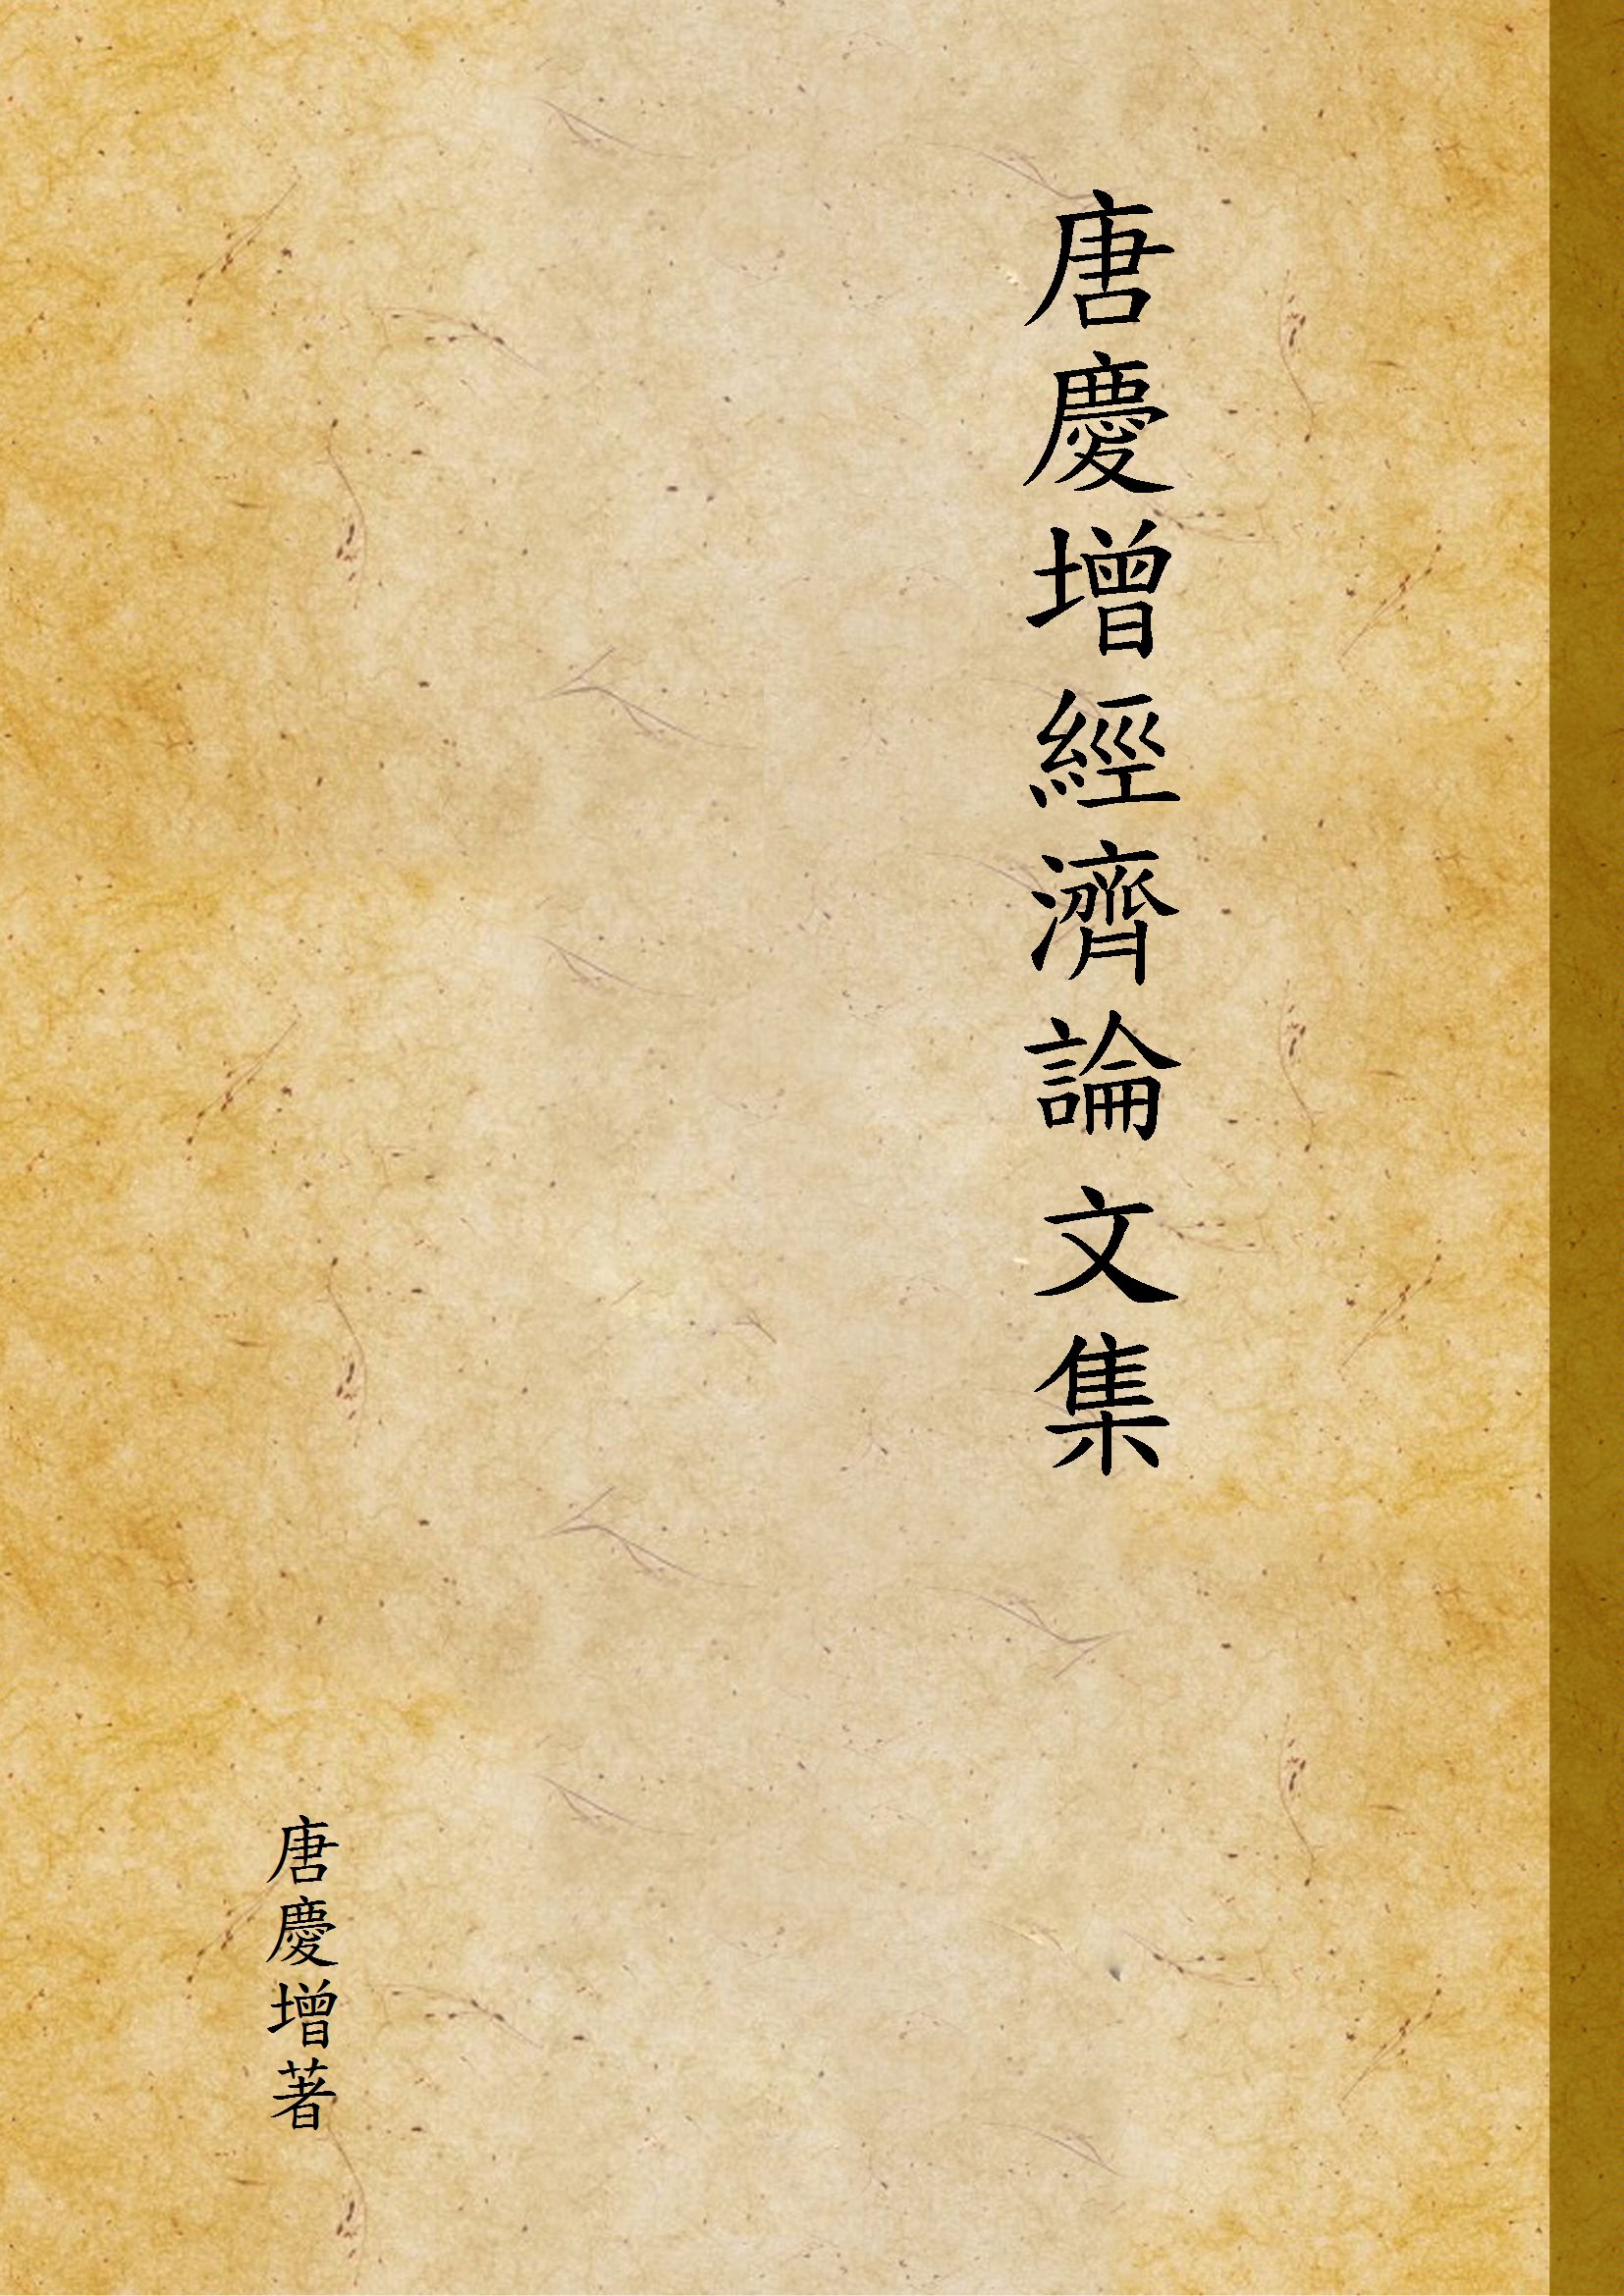 唐慶增經濟論文集
唐慶增著